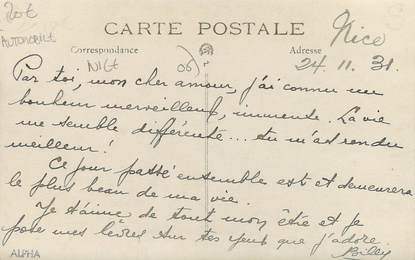 20€
AUTOMOBILE
CARTE POSTALE
Nice
Correspondance
Adresse
NICE
(06)
24.11.31.
Par toi, mon cher amour, j'ai connu un
bonheur merveilleux, immense. La vie
me semble différente... tu m'as rendu
meilleur!
Ce jour passé ensemble est et demeurera
le plus beau de ma vie.
Je t'aime de tout mon être et je
pose mes lèvres sur tes yeux que j'adore.
Billy
ALPHA